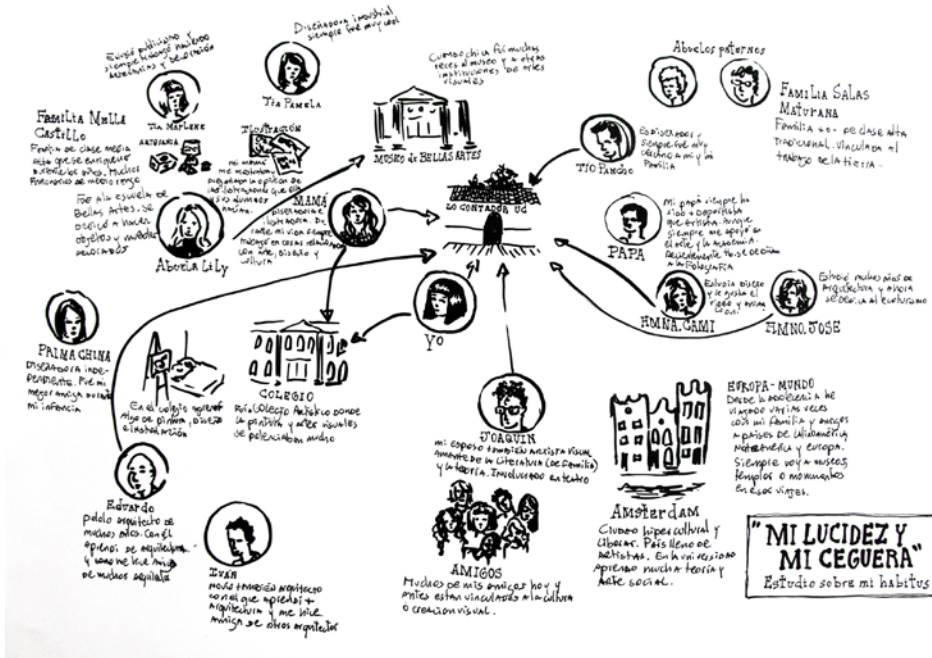 Diseñadora industrial
siempre fue muy cool
Tía Pamela
Estudió publicidad y
siempre trabajó haciendo
artesanías y decoración
Tía Marlene
ARTESANIA
Familia Mella
Castillo
Familia de clase media
alta que se enriqueció
durante los años. Muchos
funcionarios de medio rango
Fue a la escuela de
Bellas Artes. Se
dedicó a hacer
objetos y muebles
decorados
Abuela Lily
ILUSTRACIÓN
mi mamá
me mostraba y
preguntaba la opinión de
las ilustraciones que ella
y sus alumnos
hacían.
MAMÁ
Diseñadora e
ilustradora. Du-
rante mi vida siempre
trabajó en cosas relacionadas
con arte, diseño y
cultura
Cuando chica fui muchas
veces al museo y a otras
instituciones de artes
visuales
MUSEO de BELLAS ARTES
LO CONTADOR UC
Abuelos paternos
FAMILIA SALAS
MATURANA
Familia de clase alta
tradicional. Vinculada al
trabajo de la tierra.
TÍO PANCHO
Es diseñador y
siempre fue muy
cercano a mí y mi
familia
PAPÁ
Mi papá siempre ha
sido + deportista
que artista. Aunque
siempre me apoyó en
el arte y la academia.
Recientemente se dedica
a la fotografía
HMNA. CAMI
Estudia diseño
y le gusta el
video y
HMNO. JOSE
Estudió muchos años de
arquitectura y ahora
se dedica al ecoturismo
PRIMA CHINA
Diseñadora inde-
pendiente. Fue mi
mejor amiga durante
mi infancia
En el colegio aprendí
algo de pintura, diseño
e instalación
COLEGIO
Fui a colegio artístico donde
la pintura y artes visuales
se potenciaban mucho
Yo
JOAQUIN
mi esposo también artista visual
amante de la literatura (de familia)
y la teoría. Involucrado en teatro
AMIGOS
Muchos de mis amigos hoy y
antes están vinculados a la cultura
o creación visual.
Eduardo
pololo arquitecto de
muchos años. Con él
aprendí de arquitectura
y me hice amiga
de muchos
IVÁN
también arquitecto
con el que aprendí +
arquitectura y me hice
amiga de otros arquitectos
Amsterdam
Ciudad hipercultural y
liberal. País lleno de
artistas. En la universidad
aprendo mucha teoría y
arte social.
EUROPA - MUNDO
Desde la adolescencia he
viajado varias veces
con mi familia y amigos
a países de Latinoamérica
Norteamérica y Europa.
Siempre voy a museos,
templos o monumentos
en esos viajes.
"MI LUCIDEZ Y
MI CEGUERA"
Estudio sobre mi habitus